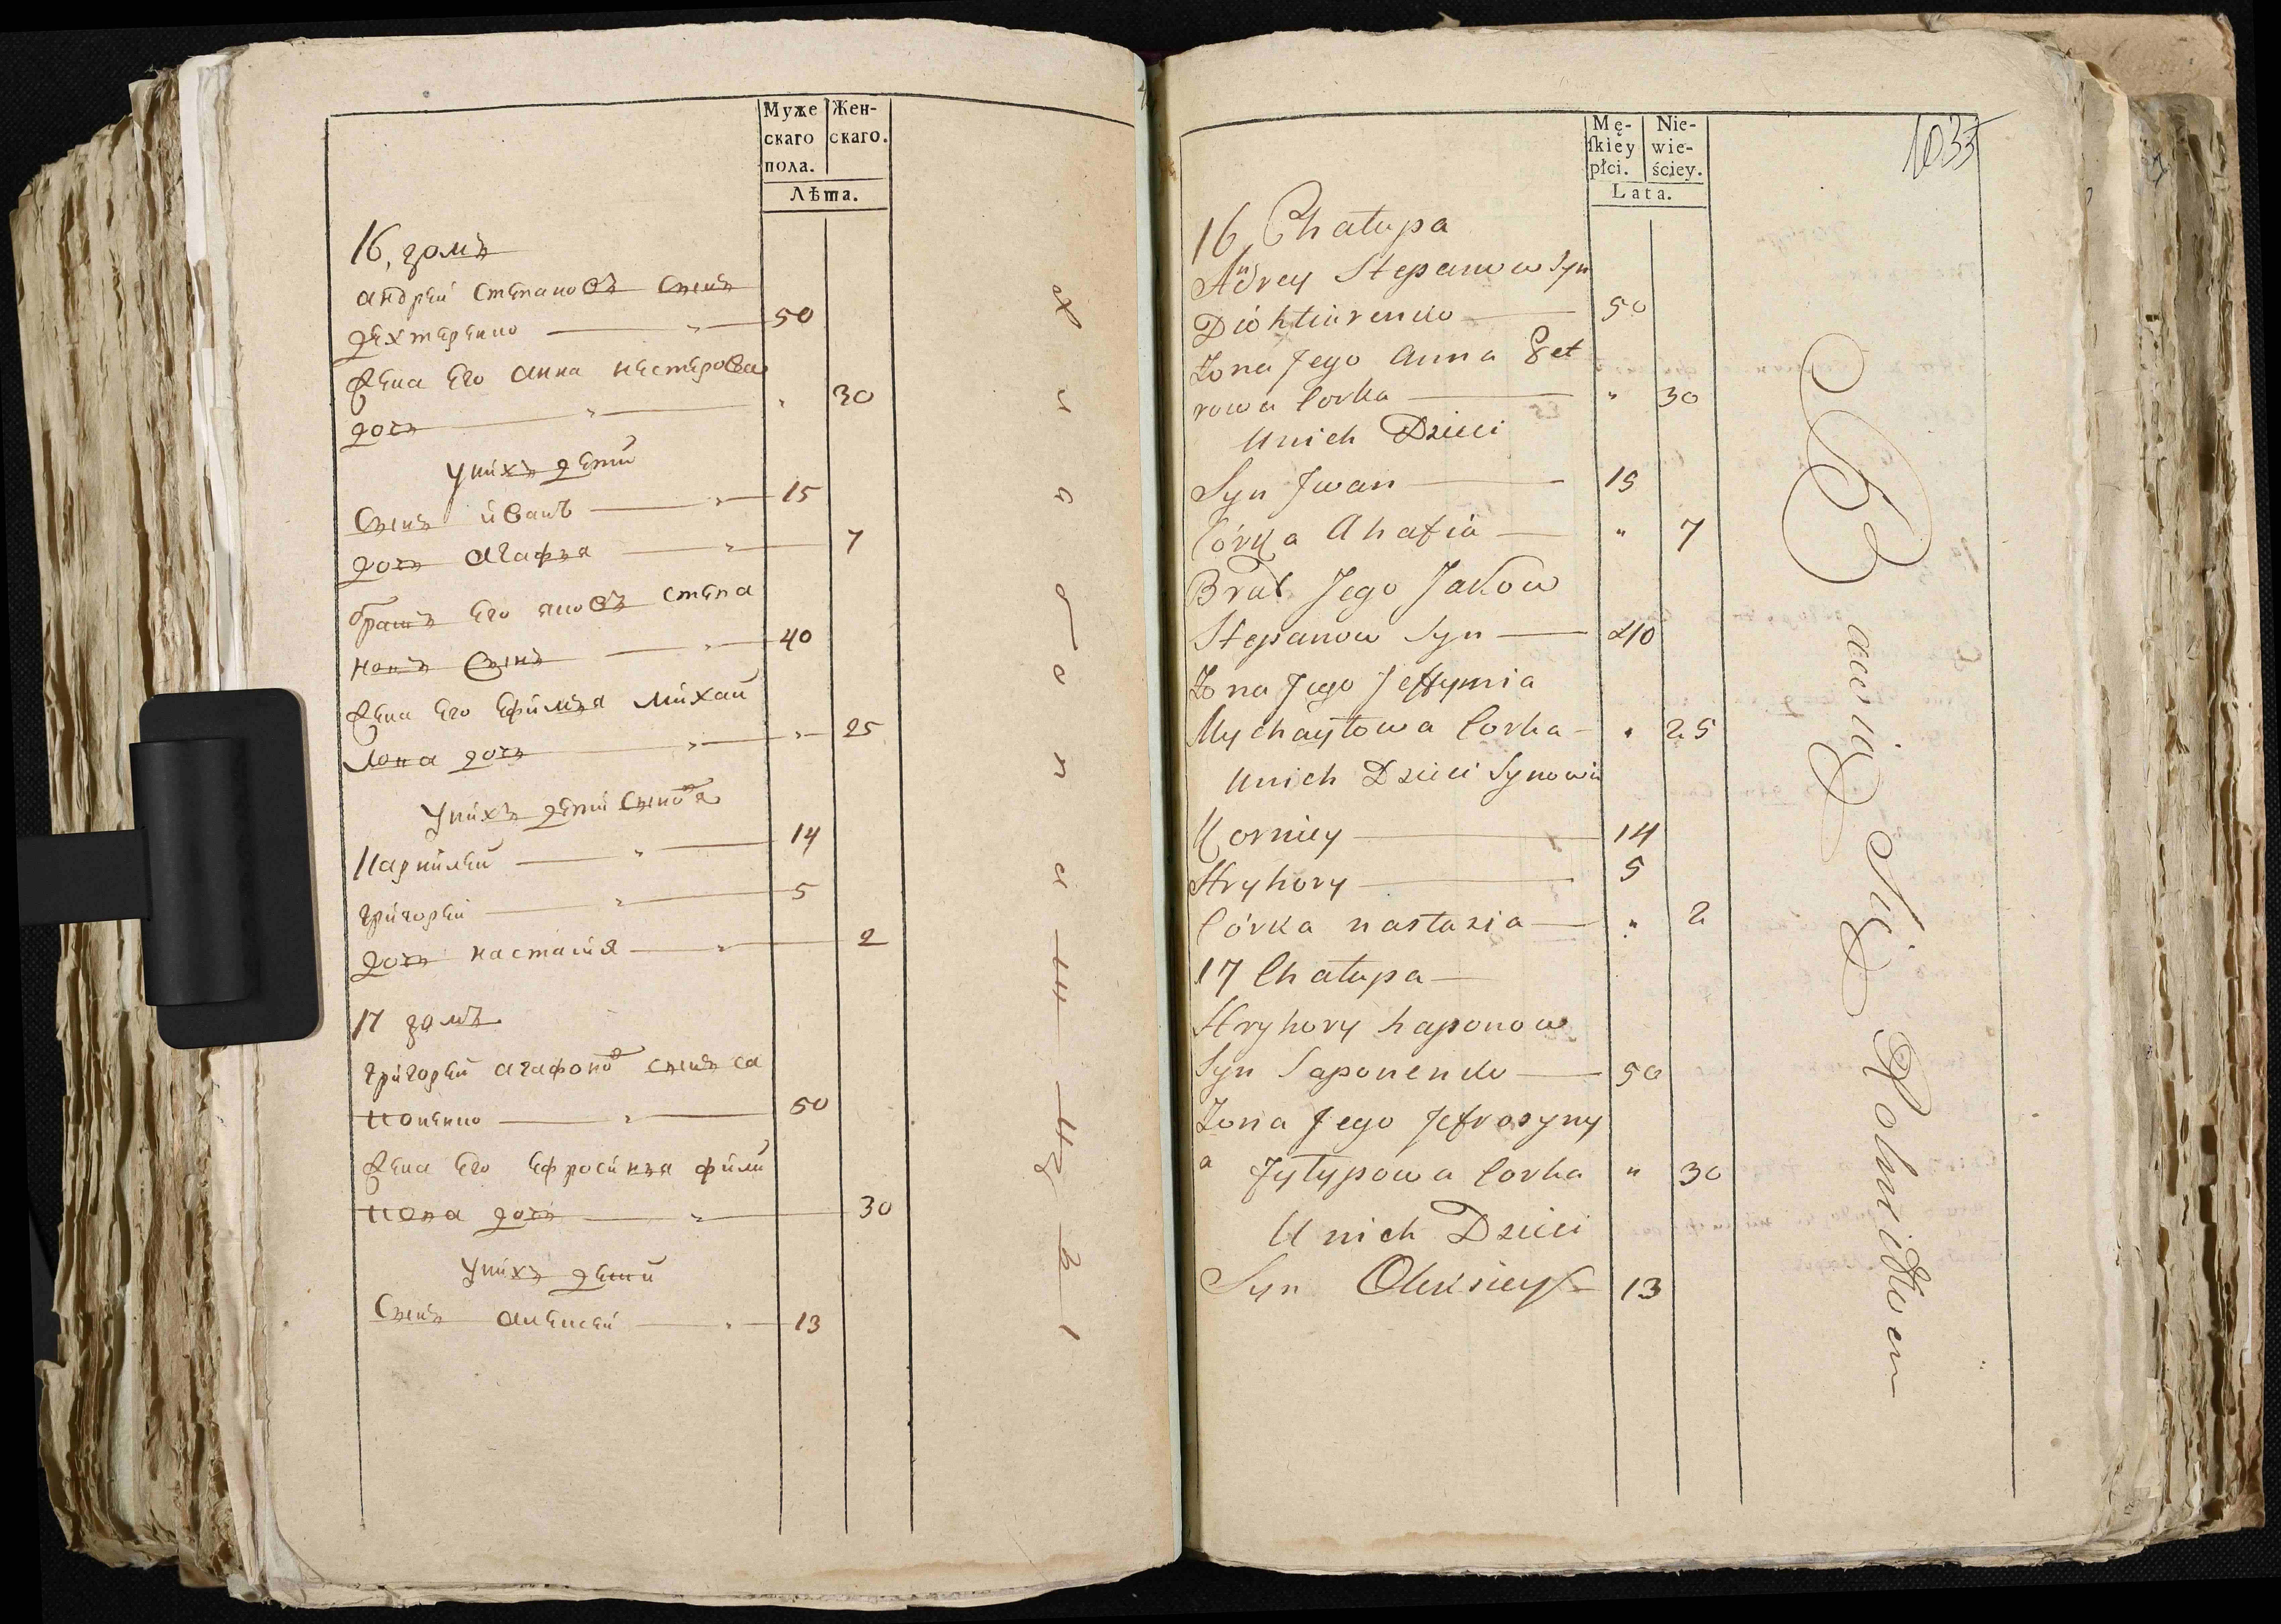 Муже
скаго
пола.
Жен-
скаго.
Лѣта.
16, домъ
андрей степановъ сынъ
дехтеренко 50
жена его анна нестерова
дочь 30
у нихъ дети
сынъ иванъ 15
дочь агафья 7
братъ его яковъ степа
новъ сынъ 40
жена его ефимья михаи
лова дочь 25
у нихъ дети сыновья
Карнилей 14
григорей 5
дочь настасия 2
17 домъ
григорей агафоновъ сынъ са
поненко 50
жена его ефросинья фили
пова дочь 30
у нихъ дети
сынъ алексей 13
Mę-
skiey
płci.
Nie-
wie-
ściey.
Lata.
1033
16 Chałupa
Andrey Stepanow Syn
Diohtiarenko 50
Żona Jego Anna
rowa Corka " 30
U nich Dzieci
Syn Jwan 15
Córka Ahafia " 7
Brat Jego Jakow
Stepanow Syn 40
Żona Jego Jeffymia
Mychayłowa Corka " 25
U nich Dzieci Synowie
Korniey 14
Hryhory 5
Córka nastazia " 2
17 Chałupa
Hryhory haponow
Syn Saponenko 50
Żona Jego Jefrosyny
a Fylypowa Corka " 30
U nich Dzieci
Syn Olexiey 13
Bawią Się Rolnictwem